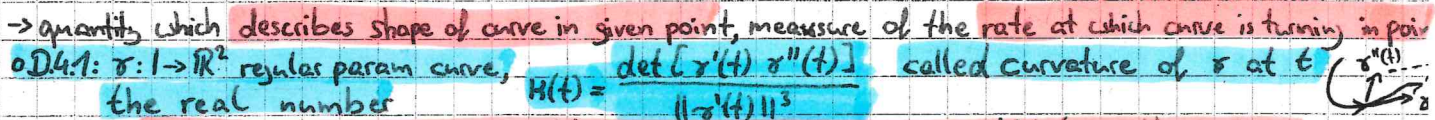 → quantity which describes shape of curve in given point, meawsure of the rate at which curve is turning in poin
o D.4.1: γ: I→ℝ² regular param curve, the real number κ(t) = det[γ'(t) γ''(t)] / ||γ'(t)||³ called curvature of γ at t
γ''(t)